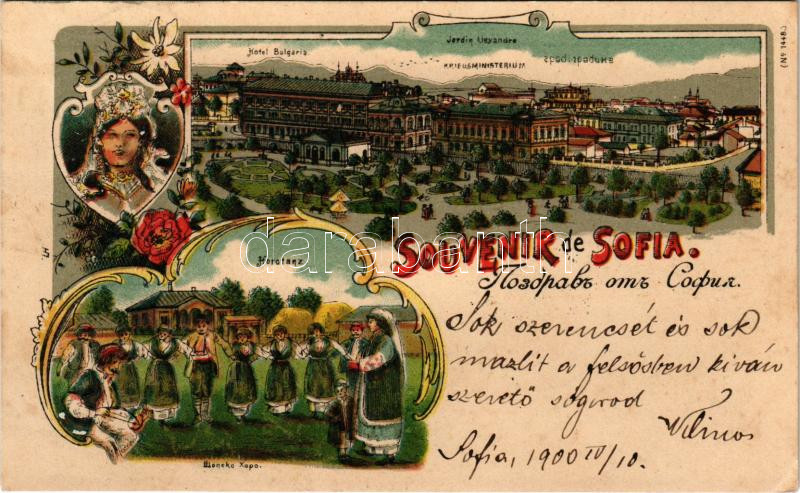 Hotel Bulgaria
Jardin Alexandre
KRIEGSMINISTERIUM
(Nº 1448.)
Horotanz
SOUVENIR de SOFIA.
Поздравъ отъ София.
Sok szerencsét és sok
mazlit a felsősben kiván
szerető sogorod
Vilmos
Sofia, 1900 IV/10.
Шопско Хоро.
darabanth.com